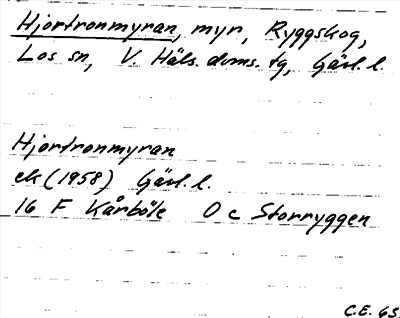 Hjortronmyran, myr, Ryggskog,
Los sn, V. Häls. doms. tg, Gävl. l.
Hjortronmyran
ek (1958) Gävl. l.
16 F Kårböle O c Storryggen
C.E. 65.